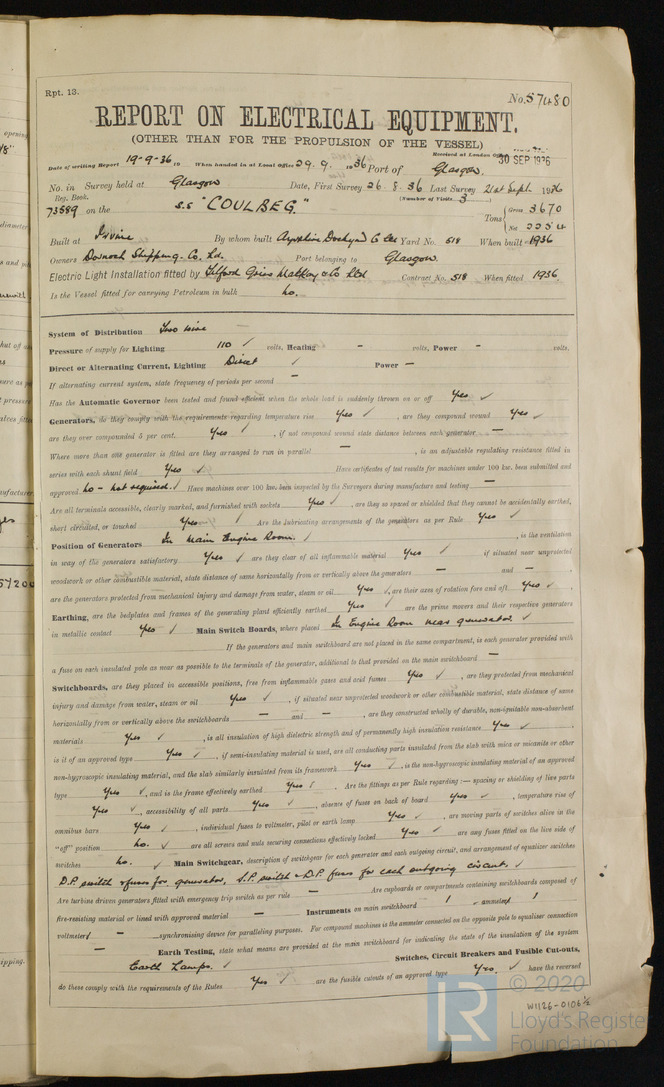 Rpt. 13.
No. 57480
REPORT ON ELECTRICAL EQUIPMENT.
(OTHER THAN FOR THE PROPULSION OF THE VESSEL)
Received at London Office 30 SEP 1936
Date of writing Report 19-9-36 19 When handed in at Local Office 29.9. 1936 Port of Glasgow.
No. in Survey held at Glasgow Date, First Survey 26.8.36 Last Survey 21st Sept 1936
Reg. Book. (Number of Visits 3)
73589 on the S.S "COULBEG." Tons { Gross 3670
Net 2254
Built at Irvine By whom built Ayrshire Dockyard Co Ltd Yard No. 518 When built 1936
Owners Dornoch Shipping Co. Ld. Port belonging to Glasgow.
Electric Light Installation fitted by Telford Grier Mackay & Co Ltd Contract No. 518 When fitted 1936.
Is the Vessel fitted for carrying Petroleum in bulk no.
System of Distribution Two wire
Pressure of supply for Lighting 110 ✓ volts, Heating - volts, Power - volts.
Direct or Alternating Current, Lighting Direct ✓ Power —
If alternating current system, state frequency of periods per second —
Has the Automatic Governor been tested and found efficient when the whole load is suddenly thrown on or off Yes ✓
Generators, do they comply with the requirements regarding temperature rise Yes ✓, are they compound wound Yes ✓
are they over compounded 5 per cent. Yes ✓, if not compound wound state distance between each generator —
Where more than one generator is fitted are they arranged to run in parallel —, is an adjustable regulating resistance fitted in
series with each shunt field Yes ✓ Have certificates of test results for machines under 100 kw. been submitted and
approved no - not required. ✓ Have machines over 100 kw. been inspected by the Surveyors during manufacture and testing —
Are all terminals accessible, clearly marked, and furnished with sockets Yes ✓, are they so spaced or shielded that they cannot be accidentally earthed,
short circuited, or touched Yes ✓ Are the lubricating arrangements of the generators as per Rule Yes ✓
Position of Generators In Main Engine Room. ✓, is the ventilation
in way of the generators satisfactory Yes ✓ are they clear of all inflammable material Yes ✓ if situated near unprotected
woodwork or other combustible material, state distance of same horizontally from or vertically above the generators — and —,
are the generators protected from mechanical injury and damage from water, steam or oil Yes ✓, are their axes of rotation fore and aft. Yes ✓
Earthing, are the bedplates and frames of the generating plant efficiently earthed Yes ✓ are the prime movers and their respective generators
in metallic contact Yes ✓ Main Switch Boards, where placed In Engine Room near generator. ✓
If the generators and main switchboard are not placed in the same compartment, is each generator provided with
a fuse on each insulated pole as near as possible to the terminals of the generator, additional to that provided on the main switchboard —
Switchboards, are they placed in accessible positions, free from inflammable gases and acid fumes Yes ✓, are they protected from mechanical
injury and damage from water, steam or oil Yes ✓, if situated near unprotected woodwork or other combustible material, state distance of same
horizontally from or vertically above the switchboards — and —, are they constructed wholly of durable, non-ignitable non-absorbent
materials Yes ✓, is all insulation of high dielectric strength and of permanently high insulation resistance Yes ✓,
is it of an approved type Yes ✓, if semi-insulating material is used, are all conducting parts insulated from the slab with mica or micanite or other
non-hygroscopic insulating material, and the slab similarly insulated from its framework Yes ✓, is the non-hygroscopic insulating material of an approved
type Yes ✓, and is the frame effectively earthed Yes ✓. Are the fittings as per Rule regarding :— spacing or shielding of live parts
Yes ✓, accessibility of all parts Yes ✓, absence of fuses on back of board Yes ✓, temperature rise of
omnibus bars Yes ✓, individual fuses to voltmeter, pilot or earth lamp Yes ✓, are moving parts of switches alive in the
"off" position no. ✓ are all screws and nuts securing connections effectively locked Yes ✓ are any fuses fitted on the live side of
switches no. ✓ Main Switchgear, description of switchgear for each generator and each outgoing circuit, and arrangement of equalizer switches
D.P. switch & fuses for generator, S.P. switch & D.P. fuses for each outgoing circuit ✓
Are turbine driven generators fitted with emergency trip switch as per rule — Are cupboards or compartments containing switchboards composed of
fire-resisting material or lined with approved material — Instruments on main switchboard 1 ammeters 1
voltmeters — synchronising device for paralleling purposes. For compound machines is the ammeter connected on the opposite pole to equaliser connection
— Earth Testing, state what means are provided at the main switchboard for indicating the state of the insulation of the system
Earth Lamps. ✓ Switches, Circuit Breakers and Fusible Cut-outs,
do these comply with the requirements of the Rules Yes ✓ are the fusible cutouts of an approved type Yes. ✓ have the reversed
© 2020
LR Lloyd's Register
Foundation
W1126-0106½